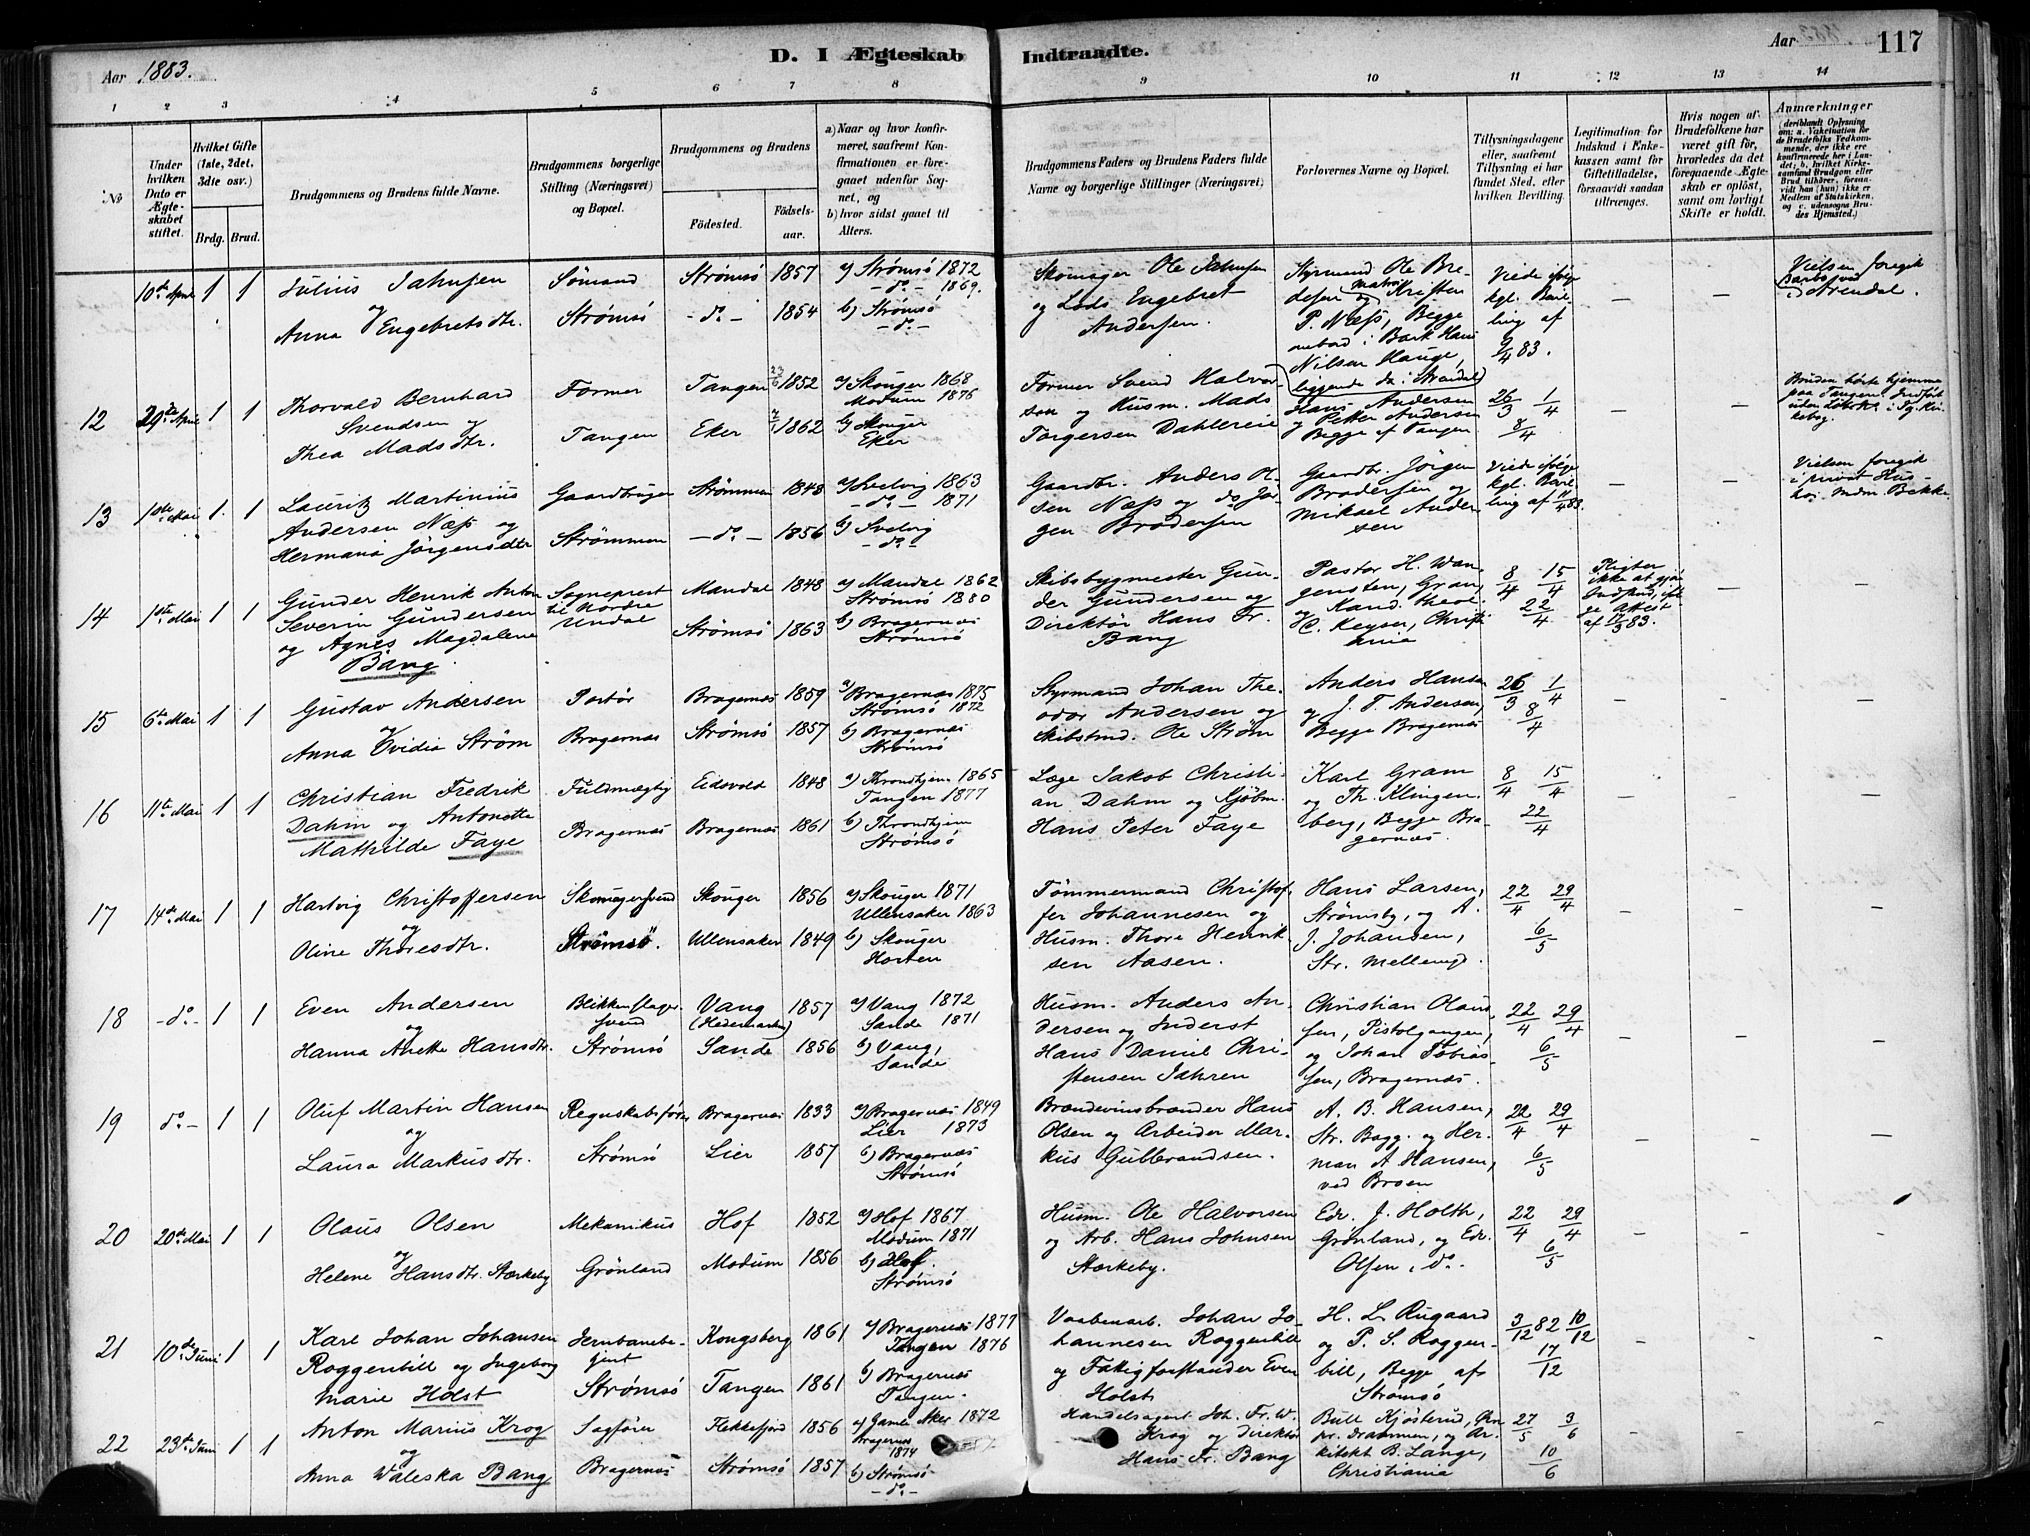 Aar 1883.
D. I Ægteskab Indtraadte.
Aar 117
1 2 3 4 5 6 7 8 9 10 11 12 13 14
No
Under hvilken Dato er Ægteskabet stiftet.
Hvilket Gifte (1ste, 2det, 3die osv.)
Brdg. Brud.
Brudgommens og Brudens fulde Navne.
Brudgommens borgerlige Stilling (Næringsvei) og Bopæl.
Brudgommens og Brudens
Fødested.
Fødselsaar.
a) Naar og hvor konfirmeret, saafremt Konfirmationen er foregaaet udenfor Sognet, og
b) hvor sidst gaaet til Alters.
Brudgommens Faders og Brudens Faders fulde Navne og borgerlige Stillinger (Næringsvei)
Forlovernes Navne og Bopæl.
Tillysningsdagene eller, saafremt Tillysning ei har fundet Sted, efter hvilken Bevilling.
Legitimation for Indskud i Enkekassen samt for Giftetilladelse, forsaavidt saadan tiltrænges.
Hvis nogen af Brudefolkene har været gift før, hvorledes da det foregaaende Ægteskab er opløst, samt om lovligt Skifte er holdt.
Anmærkninger
(deriblandt Oplysning om: a. Vakcination for de Brudefolks Vedkommende, der ikke ere konfirmerede her i Landet; b. hvilket Kirkesamfund Brudgom eller Brud tilhører, forsaavidt han (hun) ikke er Medlem af Statskirken, og c. udensogns Brudes Hjemsted.)
10de April 1 1 Julius Jahnsen og Anna Engebretsdtr. Sömand Strømsö Strømsö 1857 -do- 1854 a) Strømsö 1872 -do- 1869. b) Strømsö -do-
Skomager Ole Jahnsen og Lods Engebret Andersen. Styrmand Ole Bredesen og Matros Kristen P. Næss, Begge ombord i Bark Hans Nilsen Hauge, liggende da i Arendal Viede ifølge kgl. Bevilling af 9/4 83. — — Vielsen foregik i Arendal.
12 29de April 1 1 Thorvald Bernhard Svendsen og Thea Madsdtr. Former Tangen Tangen 23/6 1852 Eker 1862 a) Skouger 1868 Modum 1876 b) Skouger Eker
Former Svend Halvorsen og Husm. Mads Torgersen Dahlereie Hans Andersen og Petter Andersen Begge af Tangen 26/3 1/4 8/4 — — Bruden hörte hjemme paa Tangen.
13 1ste Mai 1. 1 Lauritz Martinius Andersen Næss og Hermana Jörgensdtr Gaardbruger Strömmen Strömmen 1848 -do- 1856 a) Svelvig 1863 -do- 1871 b) Svelvig -do-
Gaardbr. Anders Olsen Næss og do Jörgen Brodersen Gaardbr. Jörgen Brodersen og Mikael Andersen Viede ifölge kgl. Bevilling af 11/4 83. — — Vielsen foregik i privat Hus hos Indm. Bakke.
14 1ste Mai 1 1 Gunder Henrik Anton Severin Gundersen og Agnes Magdalene Bang. Sogneprest til Nordre Undal Mandal 1848 Strømsö 1863 a) Mandal 1862 Strømsö 1880 b) Bragernæs Strømsö
Skibsbygmester Gunder Gundersen og Direktör Hans Fr. Bang Pastor H. Wangensten, Gran, og Kand. theol. C. Keyser, Christiania 8/4 15/4 22/4 Pligter ikke at gjöre Indskud, ifölge Attest af 17/3 83. — —
15 6te Mai 1 1 Gustav Andersen og Anna Ovidia Ström Portör Bragernæs Bragernæs 1859 Strømsö 1857 a) Bragernæs 1875 Strømsö 1872 b) Bragernæs Strømsö
Styrmand Johan Theodor Andersen og Skibstmd. Ole Ström Anders Hansen og J. T. Andersen, Begge Bragernæs 26/3 1/4 8/4 — — —
16 11te Mai 1 1 Christian Fredrik Dahm og Antonette Mathilde Faye Fuldmægtig Bragernæs Eidsvold 1848 Bragernæs 1861 a) Throndhjem 1865 Tangen 1877 b) Throndhjem Strømsö
Læge Jakob Christian Dahm og Kjöbm. Hans Peter Faye Karl Gram og Th. Klingenberg, Begge Bragernæs. 8/4 15/4 22/4 — — —
17 14de Mai 1 1 Hartvig Christoffersen og Oline Thoresdtr. Skomagersvend Strømsö. Skouger 1856 Ullensaker 1849 a) Skouger 1871 Ullensaker 1863 b) Skouger Horten
Tömmermand Christoffer Johannesen og Husm. Thore Henriksen Aasen. Hans Larsen, Strømsby, og A. J. Johansen, Str. Mellemgd. 22/4 29/4 6/5 — — —
18 -do- 1 1 Even Andersen og Hanna Anette Hansdtr. Blikkenslagersvend Strømsö Vang (Hedemarken) 1857 Sande 1856 a) Vang 1872 Sande 1871 b) Vang, Sande
Husm. Anders Andersen og Inderst Hans Daniel Christensen Jahren Christian Olaussen, Pistolgangen, og Johan Tobiassen, Bragernæs. 22/4 29/4 6/5 — — —
19 do- 1 1 Oluf Martin Hansen og Laura Markusdtr. Regnskabsförer Strømsö Bragernæs 1833 Lier 1857 a) Bragernæs 1849 Lier 1873 b) Bragernæs Strømsö
Brændevinsbrænder Hans Olsen og Arbeider Markus Gulbrandsen. A. B. Hansen, Str. Bagg. og Herman A Hansen, ved Broen 22/4 29/4 6/5 — — —
20 20de Mai 1 1 Olaus Olsen og Helene Hansdtr. Stærkeby Mekanikus Grönland Hof 1852 Modum 1856 a) Hof 1867 Modum 1871 b) Hof. Strømsö
Husm. Ole Halvorsen og Arb. Hans Johnsen Stærkeby. Edv. J. Holth, Grönland, og Edv. Olsen, do. 22/4 29/4 6/5 — — —
21 10de Juni 1 1 Karl Johan Johansen Roggenbill og Ingeborg Marie Holst Jernbanebetjent Strømsö Kongsberg 1861 Tangen 1861 a) Bragernæs 1877 Tangen 1876 b) Bragernæs Tangen.
Vaabenarb. Johan Johannesen Roggenbill og Fattigforstander Even Holst H. L. Rugaard og P. S. Roggenbill, Begge af Strømsö 3/12 82 10/12 17/12 — — —
22 23de Juni 1 1 Anton Marius Krog og Anna Valeska Bang Sagförer Bragernæs Flekkefjord 1856 Strømsö 1857 a) Gamle Aker 1872 Bragernæs 1874 b) Strømsö -do-
Handelsagent Joh. Fr. W. Krog og Direktör Hans Fr. Bang Bull Kjösterud, pr. Drammen, og Arkitekt B. Lange, Christiania 27/5 3/6 10/6 — — —